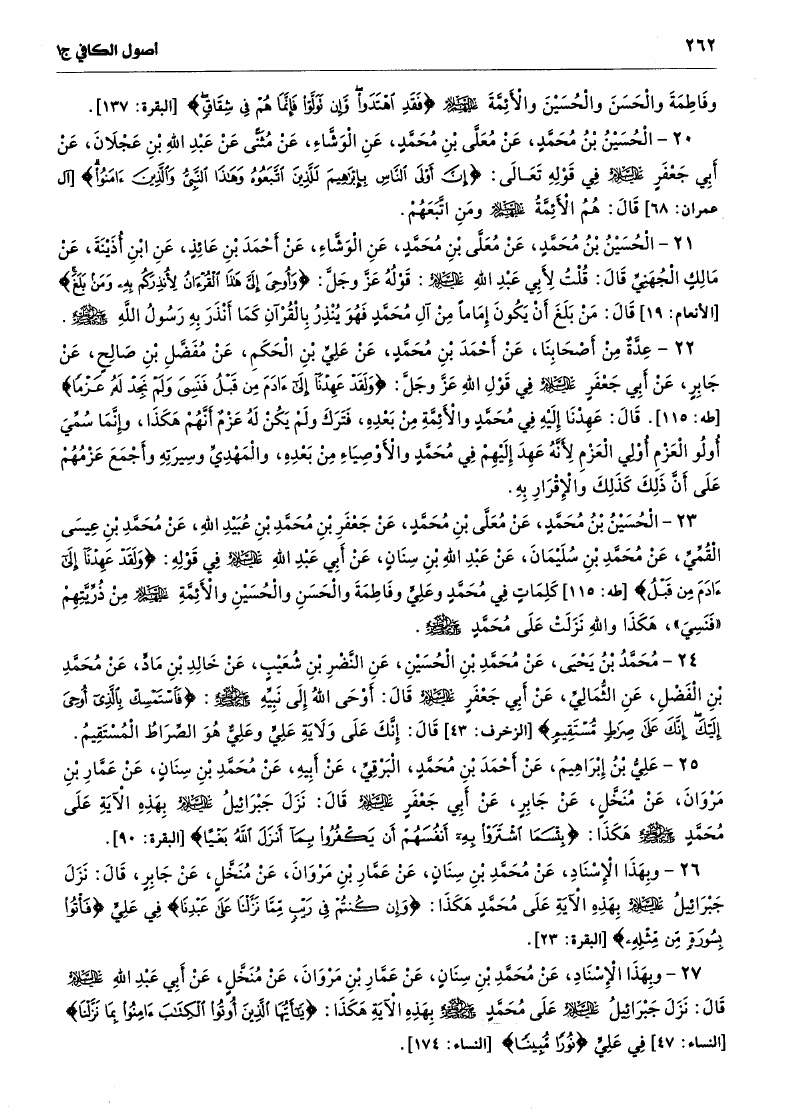 ٢٦٢
أصول الكافي ج١
وفَاطِمَةَ والْحَسَنَ والْحُسَيْنَ والْأَئِمَّةَ عليهم السلام ﴿فَقَدِ اهْتَدَواْ وَّإِن تَوَلَّوْاْ فَإِنَّمَا هُمْ فِي شِقَاقٍ﴾ [البقرة: ١٣٧].
٢٠ - الْحُسَيْنُ بْنُ مُحَمَّدٍ، عَنْ مُعَلَّى بْنِ مُحَمَّدٍ، عَنِ الْوَشَّاءِ، عَنْ مُثَنًّى عَنْ عَبْدِ اللهِ بْنِ عَجْلَانَ، عَنْ
أَبِي جَعْفَرٍ عليه السلام فِي قَوْلِهِ تَعَالَى: ﴿إِنَّ أَوْلَى النَّاسِ بِإِبْرَاهِيمَ لَلَّذِينَ اتَّبَعُوهُ وَهَٰذَا النَّبِيُّ وَالَّذِينَ ءَامَنُواْ﴾ [آل
عمران: ٦٨] قَالَ: هُمُ الْأَئِمَّةُ عليهم السلام ومَنِ اتَّبَعَهُمْ.
٢١ - الْحُسَيْنُ بْنُ مُحَمَّدٍ، عَنْ مُعَلَّى بْنِ مُحَمَّدٍ، عَنِ الْوَشَّاءِ، عَنْ أَحْمَدَ بْنِ عَائِذٍ، عَنِ ابْنِ أُذَيْنَةَ، عَنْ
مَالِكٍ الْجُهَنِيِّ قَالَ: قُلْتُ لِأَبِي عَبْدِ اللهِ عليه السلام: قَوْلُهُ عَزَّ وجَلَّ: ﴿وَأُوحِيَ إِلَيَّ هَٰذَا الْقُرْءَانُ لِأُنذِرَكُم بِهِ وَمَن بَلَغَ﴾
[الأنعام: ١٩] قَالَ: مَنْ بَلَغَ أَنْ يَكُونَ إِمَاماً مِنْ آلِ مُحَمَّدٍ فَهُوَ يُنْذِرُ بِالْقُرْآنِ كَمَا أَنْذَرَ بِهِ رَسُولُ اللَّهِ ﷺ.
٢٢ - عِدَّةٌ مِنْ أَصْحَابِنَا، عَنْ أَحْمَدَ بْنِ مُحَمَّدٍ، عَنْ عَلِيِّ بْنِ الْحَكَمِ، عَنْ مُفَضَّلِ بْنِ صَالِحٍ، عَنْ
جَابِرٍ، عَنْ أَبِي جَعْفَرٍ عليه السلام فِي قَوْلِ اللهِ عَزَّ وجَلَّ: ﴿وَلَقَدْ عَهِدْنَا إِلَىٰ ءَادَمَ مِن قَبْلُ فَنَسِيَ وَلَمْ نَجِدْ لَهُ عَزْمًا﴾
[طه: ١١٥]. قَالَ: عَهِدْنَا إِلَيْهِ فِي مُحَمَّدٍ والْأَئِمَّةِ مِنْ بَعْدِهِ، فَتَرَكَ ولَمْ يَكُنْ لَهُ عَزْمٌ أَنَّهُمْ هَكَذَا، وإِنَّمَا سُمِّيَ
أُولُو الْعَزْمِ أُوْلِي الْعَزْمِ لِأَنَّهُ عَهِدَ إِلَيْهِمْ فِي مُحَمَّدٍ والْأَوْصِيَاءِ مِنْ بَعْدِهِ، والْمَهْدِيِّ وسِيرَتِهِ وأَجْمَعَ عَزْمُهُمْ
عَلَى أَنَّ ذَلِكَ كَذَلِكَ والْإِقْرَارِ بِهِ.
٢٣ - الْحُسَيْنُ بْنُ مُحَمَّدٍ، عَنْ مُعَلَّى بْنِ مُحَمَّدٍ، عَنْ جَعْفَرِ بْنِ مُحَمَّدِ بْنِ عُبَيْدِ اللهِ، عَنْ مُحَمَّدِ بْنِ عِيسَى
الْقُمِّيِّ، عَنْ مُحَمَّدِ بْنِ سُلَيْمَانَ، عَنْ عَبْدِ اللهِ بْنِ سِنَانٍ، عَنْ أَبِي عَبْدِ اللهِ عليه السلام فِي قَوْلِهِ: ﴿وَلَقَدْ عَهِدْنَا إِلَىٰ
ءَادَمَ مِن قَبْلُ﴾ [طه: ١١٥] كَلِمَاتٍ فِي مُحَمَّدٍ وعَلِيٍّ وفَاطِمَةَ والْحَسَنِ والْحُسَيْنِ والْأَئِمَّةِ عليهم السلام مِنْ ذُرِّيَّتِهِمْ
«فَنَسِيَ»، هَكَذَا واللهِ نَزَلَتْ عَلَى مُحَمَّدٍ ﷺ.
٢٤ - مُحَمَّدُ بْنُ يَحْيَى، عَنْ مُحَمَّدِ بْنِ الْحُسَيْنِ، عَنِ النَّضْرِ بْنِ شُعَيْبٍ، عَنْ خَالِدِ بْنِ مَادٍّ، عَنْ مُحَمَّدِ
بْنِ الْفَضْلِ، عَنِ الثُّمَالِيِّ، عَنْ أَبِي جَعْفَرٍ عليه السلام قَالَ: أَوْحَى اللهُ إِلَى نَبِيِّهِ ﷺ: ﴿فَاسْتَمْسِكْ بِالَّذِي أُوحِيَ
إِلَيْكَ إِنَّكَ عَلَىٰ صِرَٰطٍ مُّسْتَقِيمٍ﴾ [الزخرف: ٤٣] قَالَ: إِنَّكَ عَلَى وَلَايَةِ عَلِيٍّ وعَلِيٌّ هُوَ الصِّرَاطُ الْمُسْتَقِيمُ.
٢٥ - عَلِيُّ بْنُ إِبْرَاهِيمَ، عَنْ أَحْمَدَ بْنِ مُحَمَّدٍ، الْبَرْقِيِّ، عَنْ أَبِيهِ، عَنْ مُحَمَّدِ بْنِ سِنَانٍ، عَنْ عَمَّارِ بْنِ
مَرْوَانَ، عَنْ مُنَخَّلٍ، عَنْ جَابِرٍ، عَنْ أَبِي جَعْفَرٍ عليه السلام قَالَ: نَزَلَ جَبْرَائِيلُ عليه السلام بِهَذِهِ الْآيَةِ عَلَى
مُحَمَّدٍ ﷺ هَكَذَا: ﴿بِئْسَمَا اشْتَرَوْاْ بِهِ أَنفُسَهُمْ أَن يَكْفُرُواْ بِمَا أَنزَلَ اللَّهُ بَغْيًا﴾ [البقرة: ٩٠].
٢٦ - وبِهَذَا الْإِسْنَادِ، عَنْ مُحَمَّدِ بْنِ سِنَانٍ، عَنْ عَمَّارِ بْنِ مَرْوَانَ، عَنْ مُنَخَّلٍ، عَنْ جَابِرٍ، قَالَ: نَزَلَ
جَبْرَائِيلُ عليه السلام بِهَذِهِ الْآيَةِ عَلَى مُحَمَّدٍ هَكَذَا: ﴿وَإِن كُنتُمْ فِي رَيْبٍ مِّمَّا نَزَّلْنَا عَلَىٰ عَبْدِنَا﴾ فِي عَلِيٍّ ﴿فَأْتُواْ
بِسُورَةٍ مِّن مِّثْلِهِ﴾ [البقرة: ٢٣].
٢٧ - وبِهَذَا الْإِسْنَادِ، عَنْ مُحَمَّدِ بْنِ سِنَانٍ، عَنْ عَمَّارِ بْنِ مَرْوَانَ، عَنْ مُنَخَّلٍ، عَنْ أَبِي عَبْدِ اللهِ عليه السلام
قَالَ: نَزَلَ جَبْرَائِيلُ عليه السلام عَلَى مُحَمَّدٍ ﷺ بِهَذِهِ الْآيَةِ هَكَذَا: ﴿يَٰأَيُّهَا الَّذِينَ أُوتُواْ الْكِتَٰبَ ءَامِنُواْ بِمَا نَزَّلْنَا﴾
[النساء: ٤٧] فِي عَلِيٍّ ﴿نُورًا مُّبِينًا﴾ [النساء: ١٧٤].